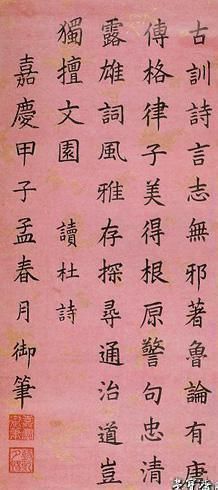 古訓詩言志無邪著魯論有唐
傳格律子美得根原警句忠清
露雄詞風雅存探尋通治道豈
獨擅文園 讀杜詩
嘉慶甲子孟春月御筆